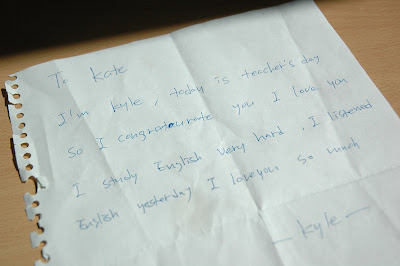 To Kate
I'm Kyle, today is teacher's day
So I congraturate you I love you
I study English very hard, I listened
English yesterday I love you so much
— Kyle —